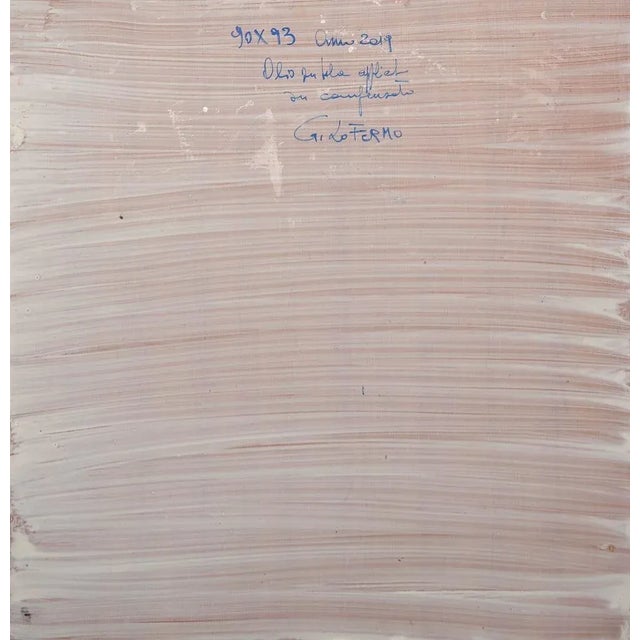 90X93 Anno 2019
Olio su tela applicat
su compensato
GiroFermo